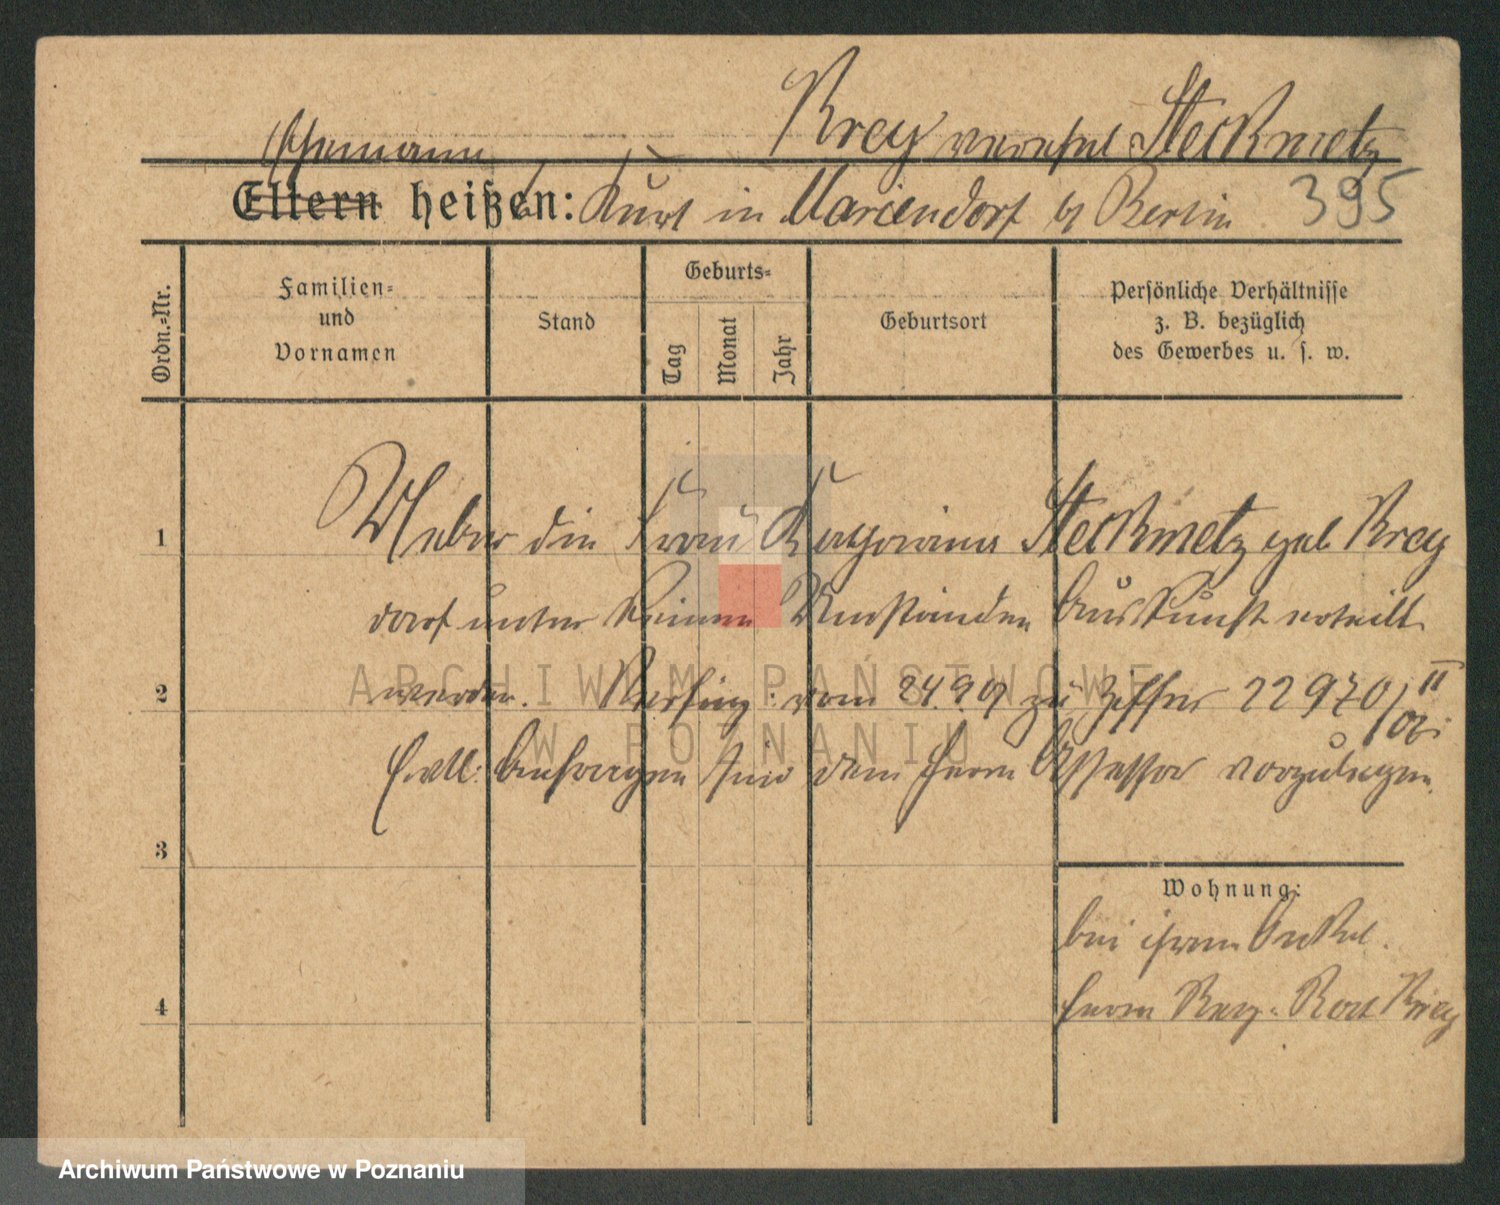 Krey verehel Steckmetz
Ehemann
Eltern heißen: Kurt in Mariendorf b/ Berlin 395
Ordn.=Nr.
Familien=
und
Vornamen
Stand
Geburts=
Tag
Monat
Jahr
Geburtsort
Persönliche Verhältnisse
z. B. bezüglich
des Gewerbes u. s. w.
1
Ueber die Frau Katharina Steckmetz geb Krey
darf unter keinen Umständen Auskunft erteilt
2
werden. Verfüg: vom 24.9.07 zu Ziffer 22970/07 II
Evtl: Anfragen sind dem Herrn Assessor vorzulegen.
3
Wohnung:
bei ihrem Onkel.
4
Herrn Reg.- Rat Krey
ARCHIWUM PAŃSTWOWE
W POZNANIU
Archiwum Państwowe w Poznaniu